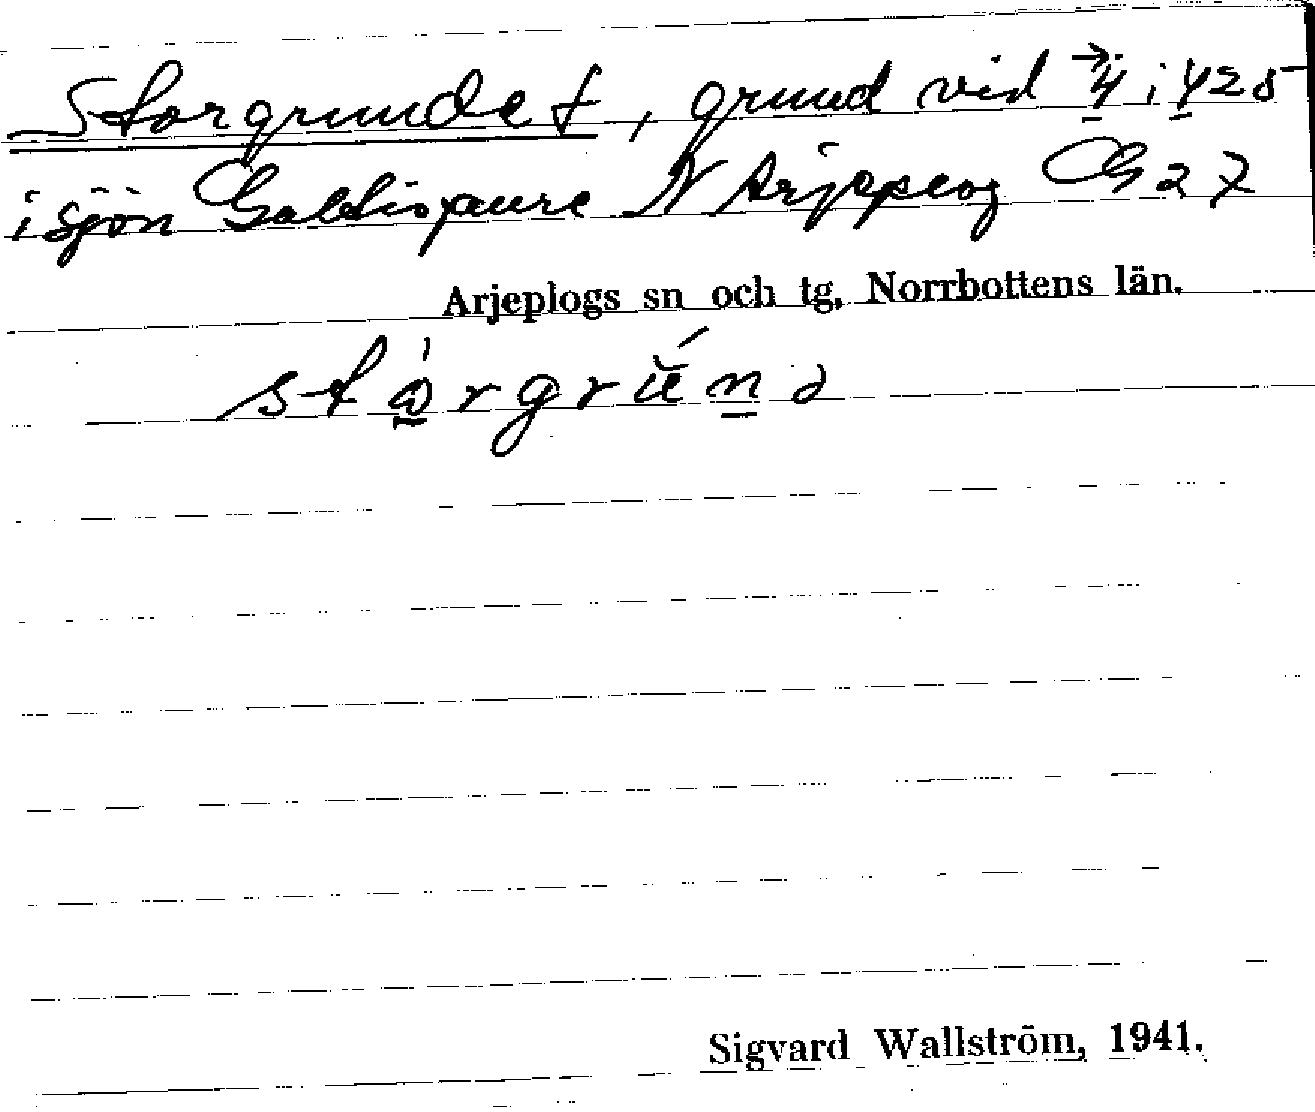 Storgrundet, grund vid → 4 i 425
i sjön Galtisjaure N Arjeplog G 27
Arjeplogs sn och tg, Norrbottens län.
stórgrúnd
Sigvard Wallström, 1941.